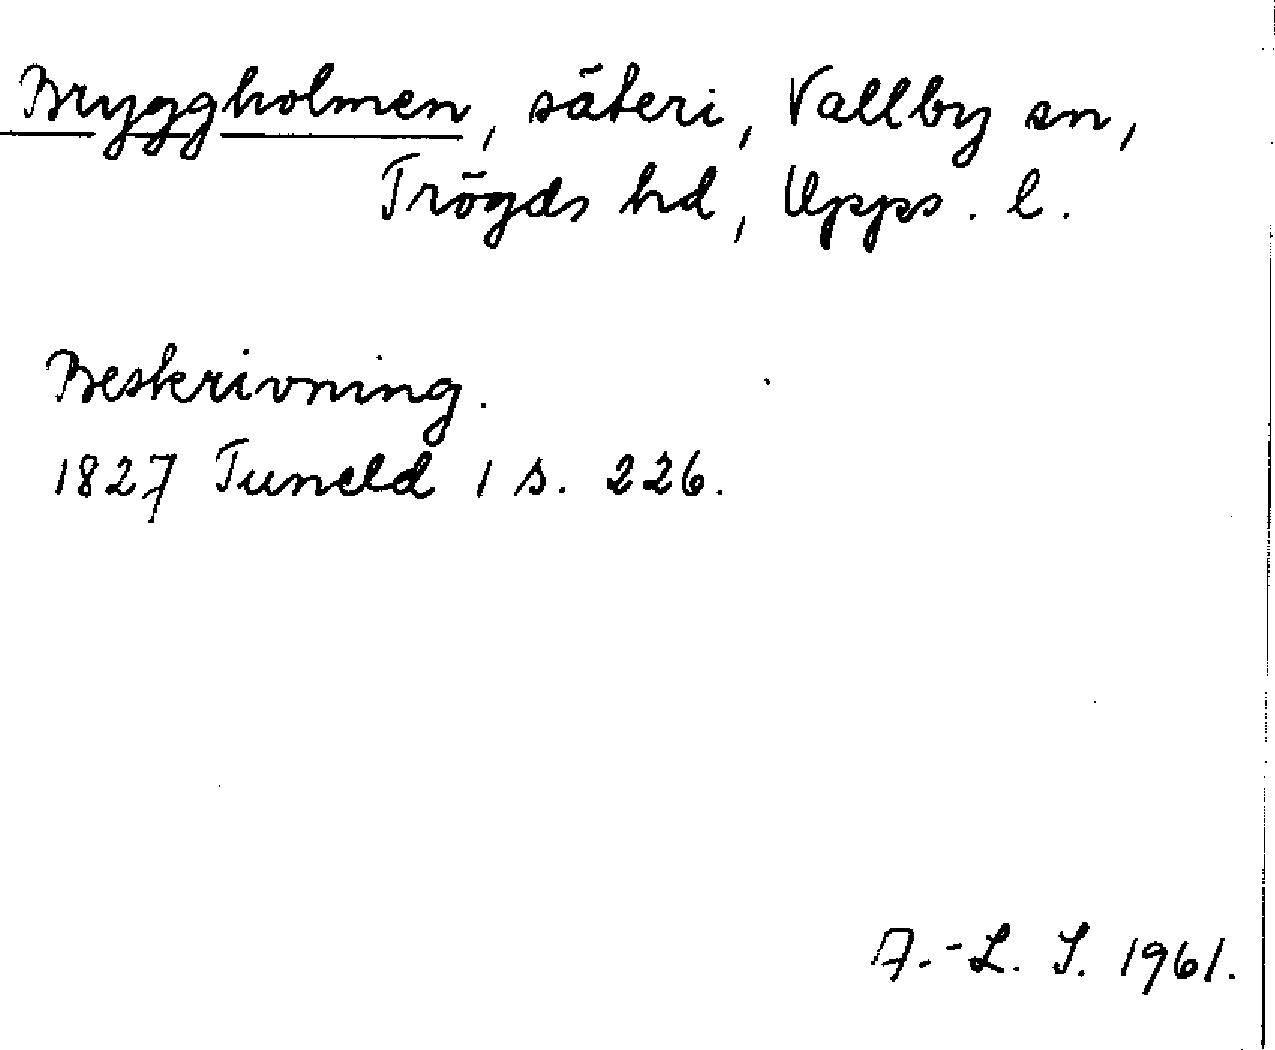 Bryggholmen, säteri, Vallby sn,
Trögds hd, Upps. l.
Beskrivning.
1827 Tuneld 1 s. 226.
A.-L. S. 1961.